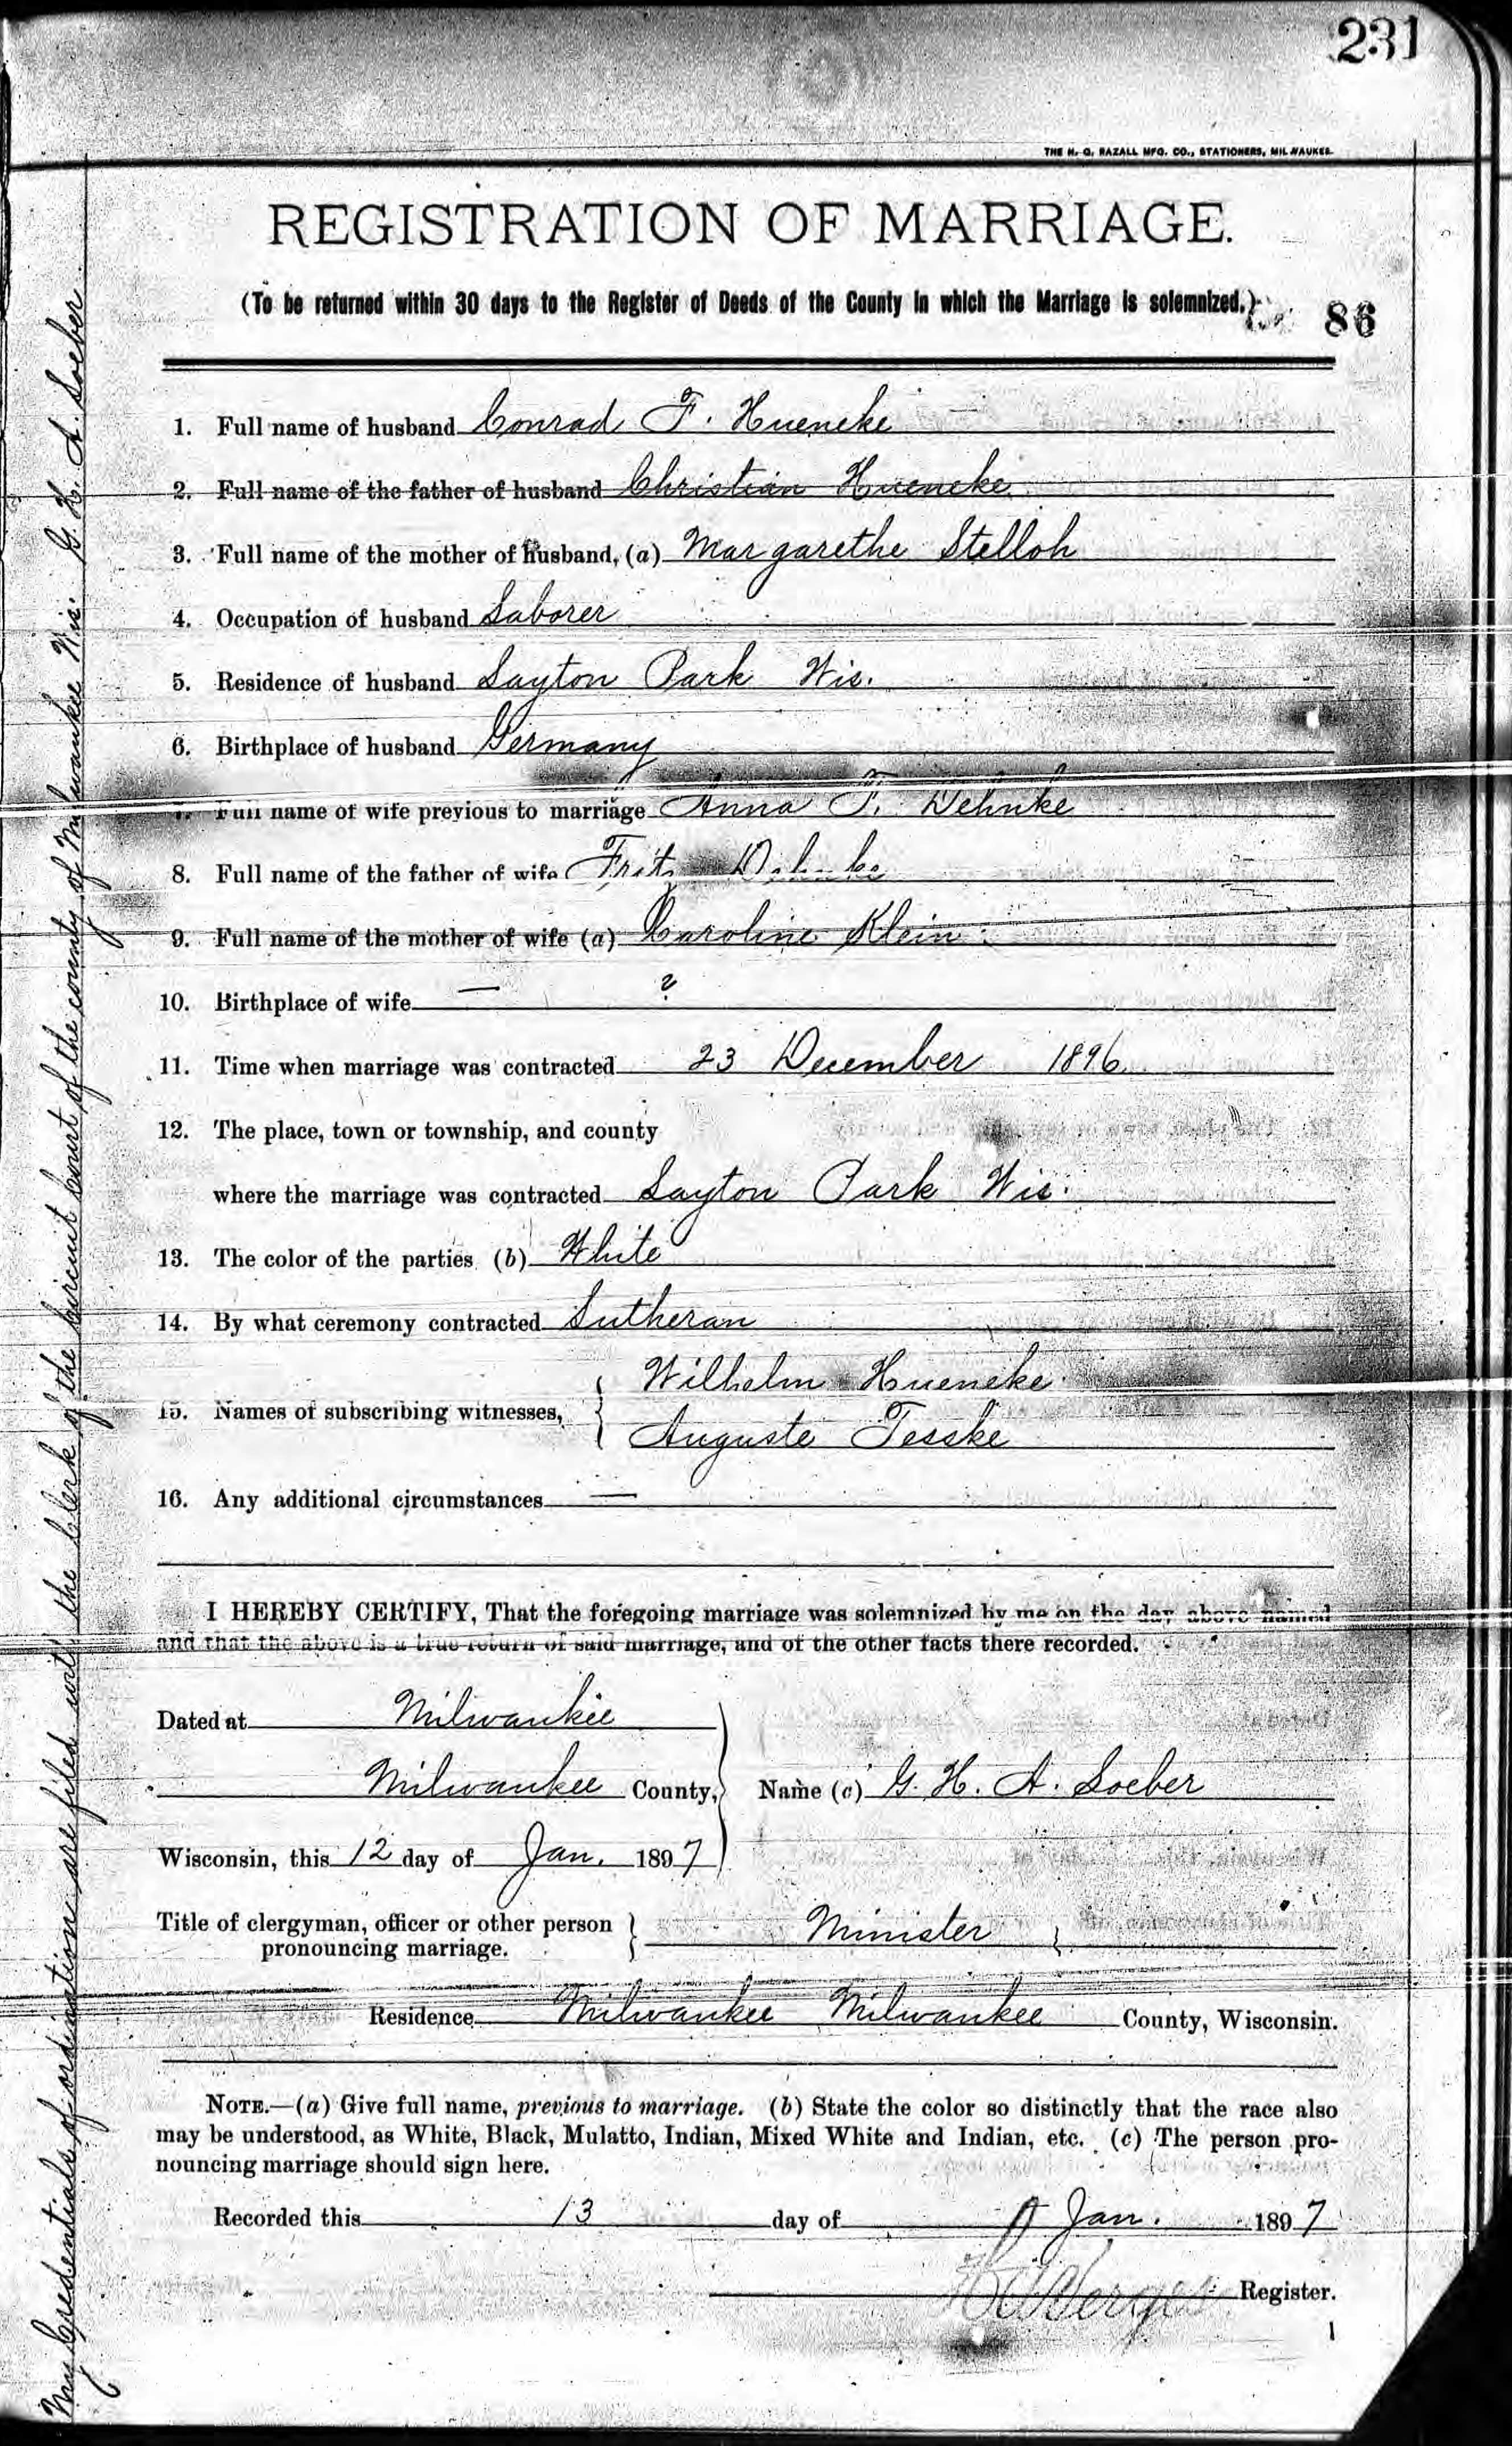 231
THE H. G. RAZALL MFG. CO., STATIONERS, MILWAUKEE.
REGISTRATION OF MARRIAGE.
(To be returned within 30 days to the Register of Deeds of the County in which the Marriage is solemnized.)
86
1. Full name of husband Conrad F. Hueneke
2. Full name of the father of husband Christian Hueneke
3. Full name of the mother of husband, (a) Margarethe Stelloh
4. Occupation of husband Laborer
5. Residence of husband Layton Park Wis.
6. Birthplace of husband Germany
7. Full name of wife previous to marriage Anna F. Dehnke
8. Full name of the father of wife Fritz Dehnke
9. Full name of the mother of wife (a) Caroline Klein
10. Birthplace of wife — ?
11. Time when marriage was contracted 23 December 1896
12. The place, town or township, and county
where the marriage was contracted Layton Park Wis.
13. The color of the parties (b) White
14. By what ceremony contracted Lutheran
15. Names of subscribing witnesses, { Wilhelm Hueneke
Auguste Teske
16. Any additional circumstances —
I HEREBY CERTIFY, That the foregoing marriage was solemnized by me on the day above named
and that the above is a true return of said marriage, and of the other facts there recorded.
Dated at Milwaukee
Milwaukee County, Name (c) G. H. A. Loeber
Wisconsin, this 12 day of Jan. 1897
Title of clergyman, officer or other person } Minister
pronouncing marriage.
Residence Milwaukee Milwaukee County, Wisconsin.
NOTE.—(a) Give full name, previous to marriage. (b) State the color so distinctly that the race also
may be understood, as White, Black, Mulatto, Indian, Mixed White and Indian, etc. (c) The person pro-
nouncing marriage should sign here.
Recorded this 13 day of Jan. 1897
Register.
1
My Credentials of ordination are filed with the Clerk of the Circuit Court of the county of Milwaukee Wis. G. H. A. Loeber